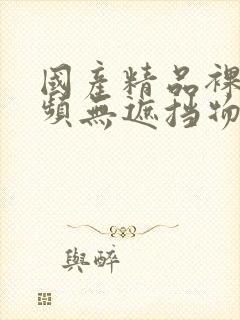 國產精品裸
頻無遮挡物
與醉